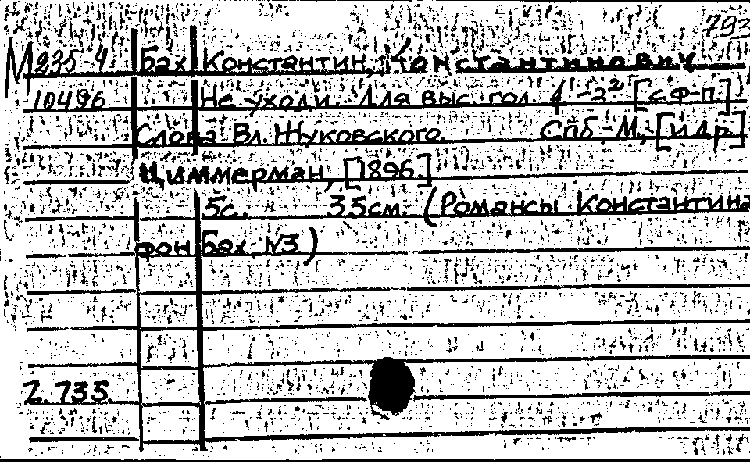 793
М 235 4 Бах Константин, Константинович
10496 Не уходи. Для выс. гол. [с ф-п.]
Слова Вл. Жуковского. СПб.-М., [и др.]
Циммерман, [1896]
5с. 35см. (Романсы Константина
фон Бах, №3)
Z.735